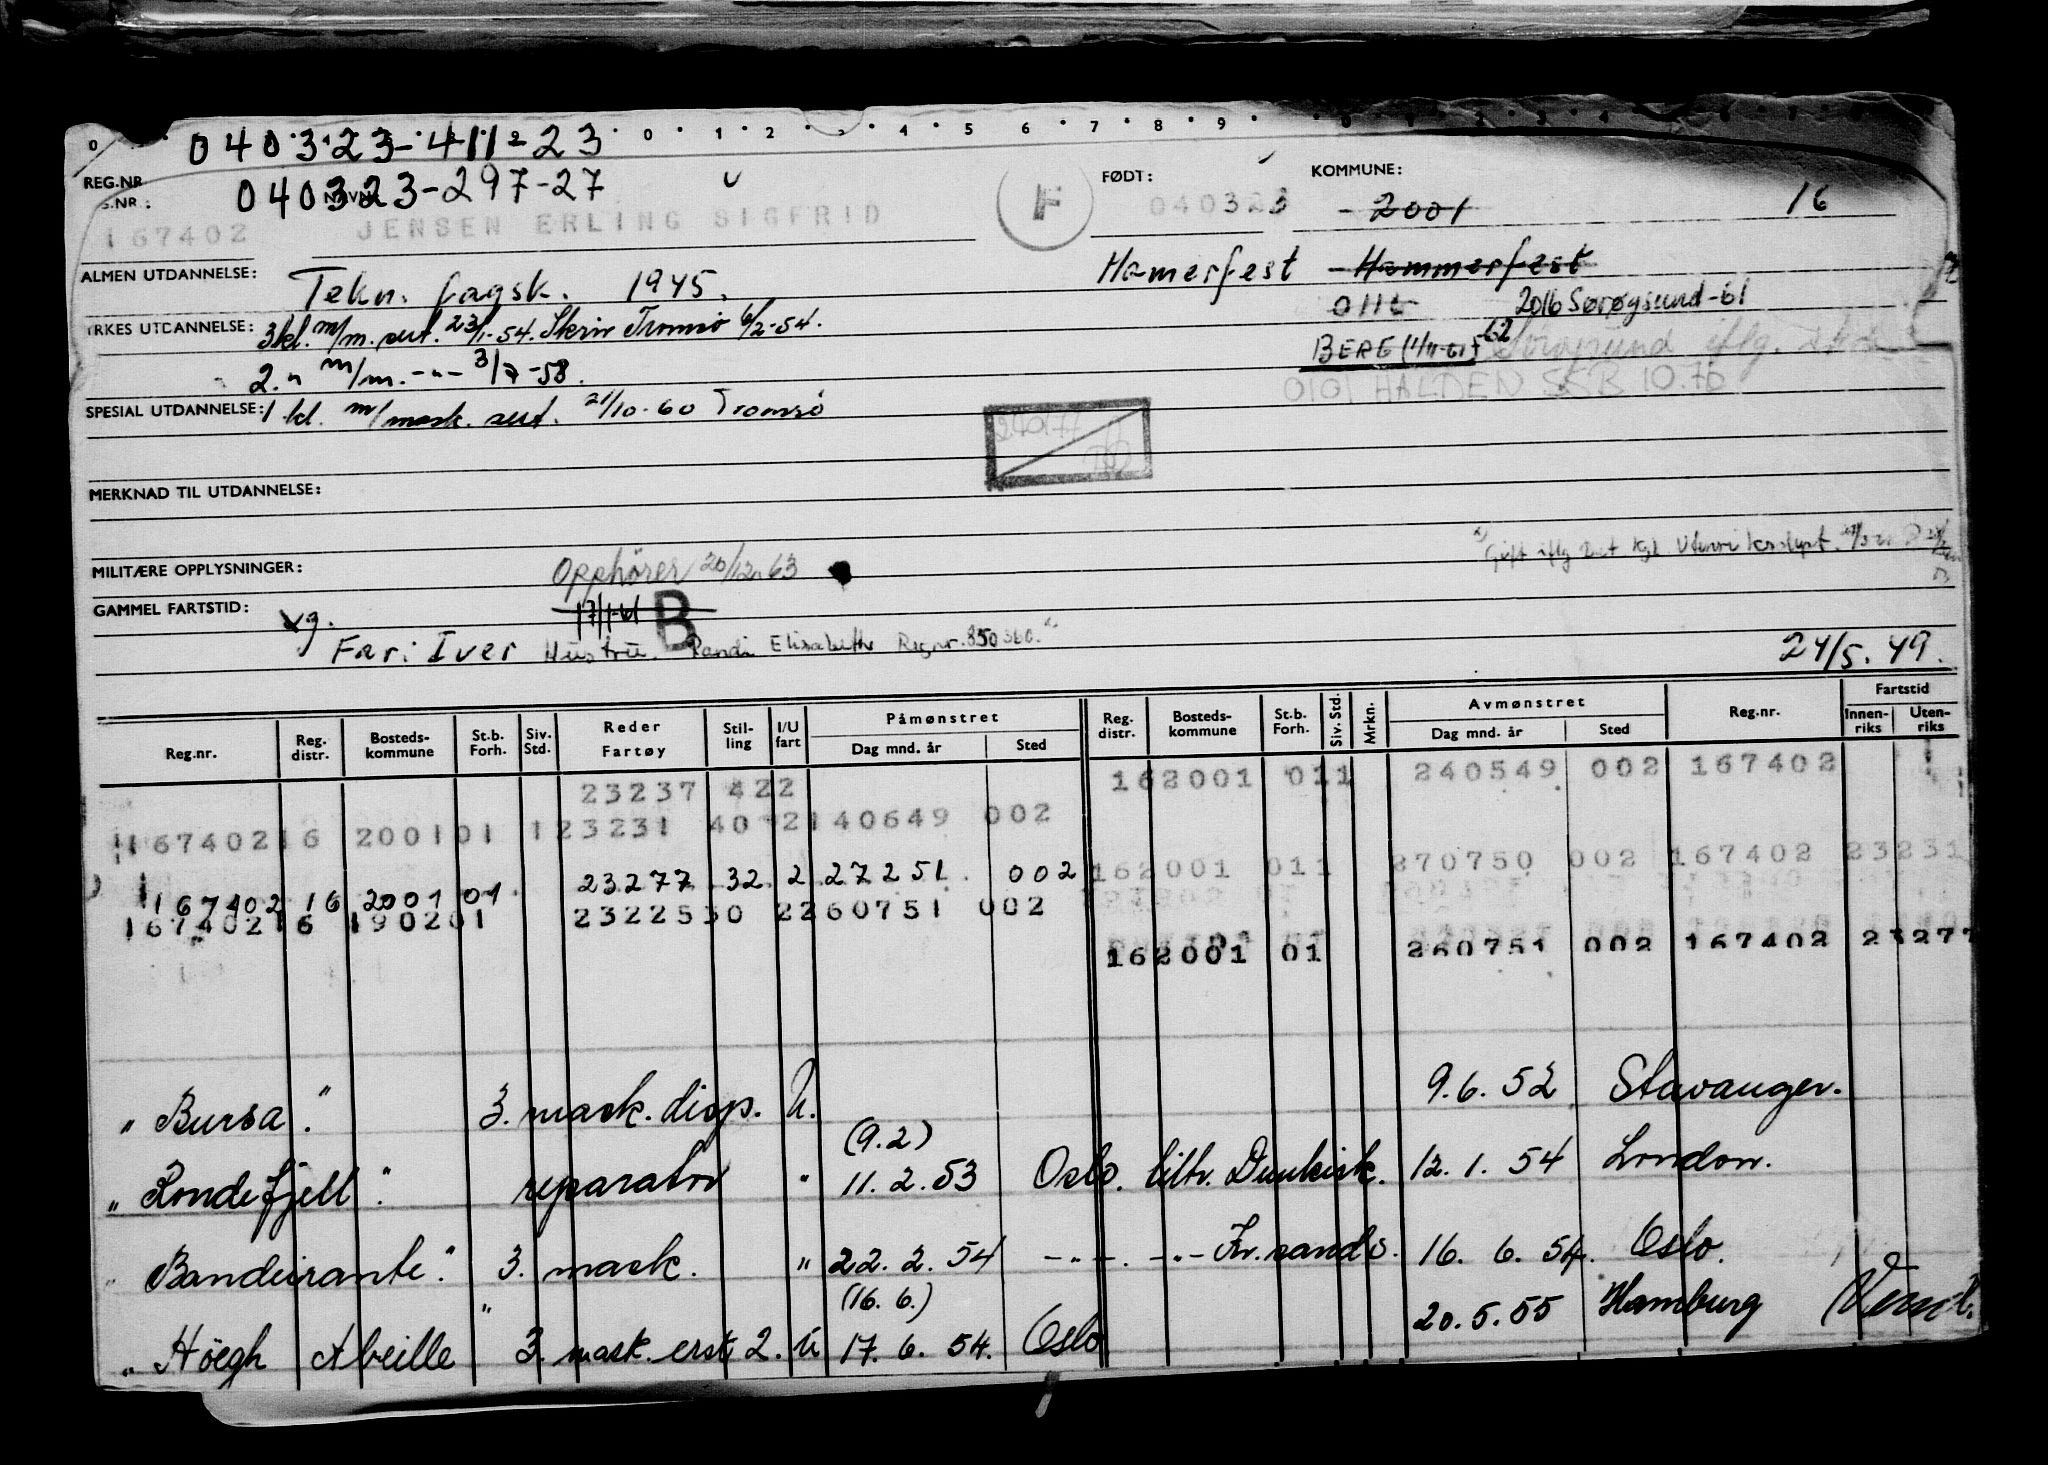 040323-411-23
REG.NR
S.NR: NAVN 040323-297-27
FØDT:
KOMMUNE:
167402 JENSEN ERLING SIGFRID F 040323 - 2001 16
ALMEN UTDANNELSE: Tekn. fagsk. 1945. Hamerfest - Hammerfest
0115 2016 Sørøysund -61
YRKES UTDANNELSE: 3kl. m/m. sert. 23/1-54. Skriv Tromsø 6/2-54.
BERG (1/11-61) -62 Sørøysund iflg.
2. " m/m. -"- 3/7-58.
0101 HALDEN SSB 10.70
SPESIAL UTDANNELSE: 1 kl. m/mask. sert. 21/10-60 Tromsø
MERKNAD TIL UTDANNELSE:
Gift iflg Det Kgl Utenriksdept.
MILITÆRE OPPLYSNINGER: Opphører 20/12-63
GAMMEL FARTSTID: 17/1-61 B
Far: Iver Hustru. Randi Elisabeth Regnr. 850360. 24/5.49.
Reg.nr. Reg. distr. Bosteds-kommune St.b. Forh. Siv. Std. Reder Fartøy Stil-ling I/U fart Påmønstret Dag mnd. år Sted Reg. distr. Bosteds-kommune St.b. Forh. Siv. Std. Mrkn. Avmønstret Dag mnd. år Sted Reg.nr. Fartstid Innen-riks Uten-riks
23237 422 162001 011 240549 002 167402
167402 16 200101 123231 40 2 140649 002
162001 011 270750 002 167402 23231
167402 16 2001 01 23277 32 2 27 2 51 002
167402 16 190201 23225 30 2 260751 002
162001 01 260751 002 167402 23277
" Bursa ". 3. mask. disp. U. 9.6.52 Stavanger.
(9.2)
" Rondefjell ". reparatør " 11.2.53 Oslo. tiltr. Dunkirk. 12.1.54 London.
" Bandeirante ". 3. mask. " 22.2.54 -"-. -"- Kr.sands. 16.6.54. Oslo.
(16.6.)
" Höegh Abeille " 3. mask. erst 2. U 17.6.54. Oslo 20.5.55 Hamburg